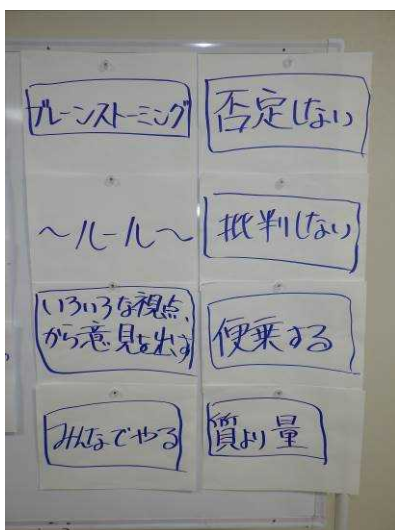 ブレーンストーミング
～ルール～
いろいろな視点、
から意見を出す
みんなでやる
否定しない
批判しない
便乗する
質より量